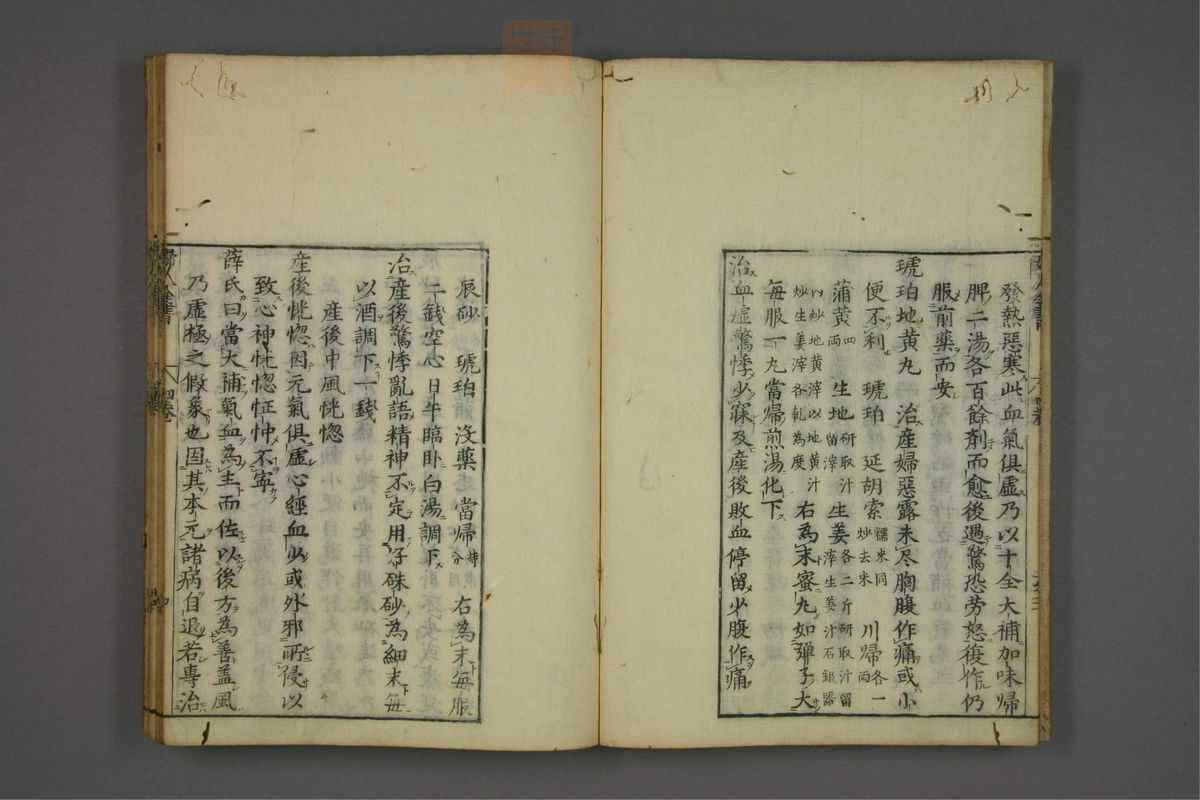 發熱惡寒此血氣俱虛乃以十全大補加味歸
脾二湯各百餘劑而愈後過驚恐勞怒復作仍
服前藥而安
琥珀地黄丸　治産婦惡露未尽胸腹作痛或小
便不利　琥珀　延胡索糯米同炒去米　川歸各一兩
蒲黄四兩　生地研取汁留滓　生姜各二斤研取汁留滓生姜汁石銀器
以炒地黄滓以地黄汁炒生姜滓各乾為度　右為末蜜丸如彈子大
毎服一丸當歸煎湯化下
治血虛驚悸少寐及産後敗血停留少腹作痛
辰砂　琥珀　没藥　當歸　右為末毎服
二錢空心日午臨卧白湯調下
治産後驚悸亂語精神不定用好硃砂為細末毎
以酒調下一錢
産後中風恍惚
産後恍惚因元氣俱虛心經血少或外邪所侵以
致心神恍惚怔忡不寧
薛氏曰當大補氣血為主而佐以後方為善盖風
乃虛極之假象也固其本元諸病自退若專治
四卷